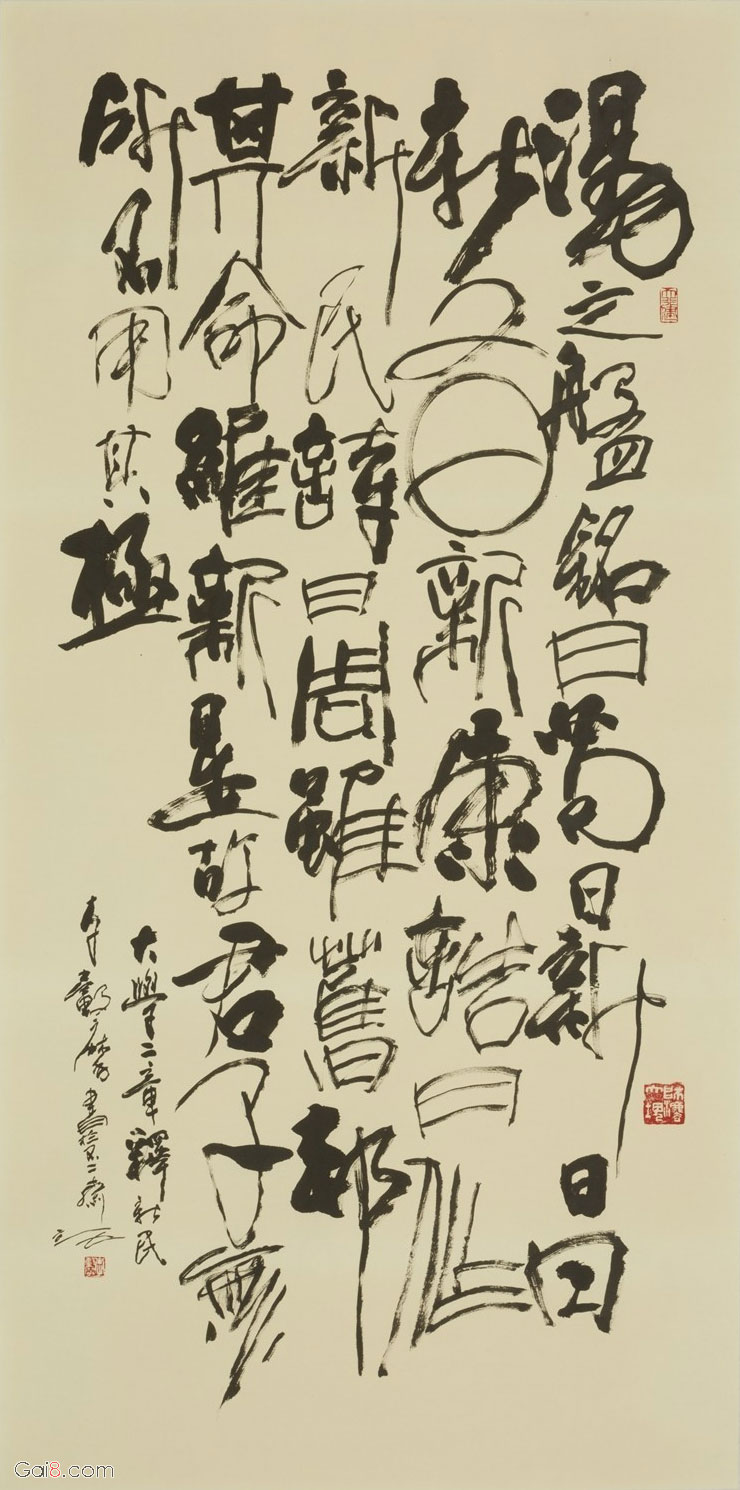 湯之盤銘曰苟日新日日
新又日新康誥曰作
新民詩曰周雖舊邦
其命維新是故君子無
所不用其極
大學二章釋新民
Gai8.com